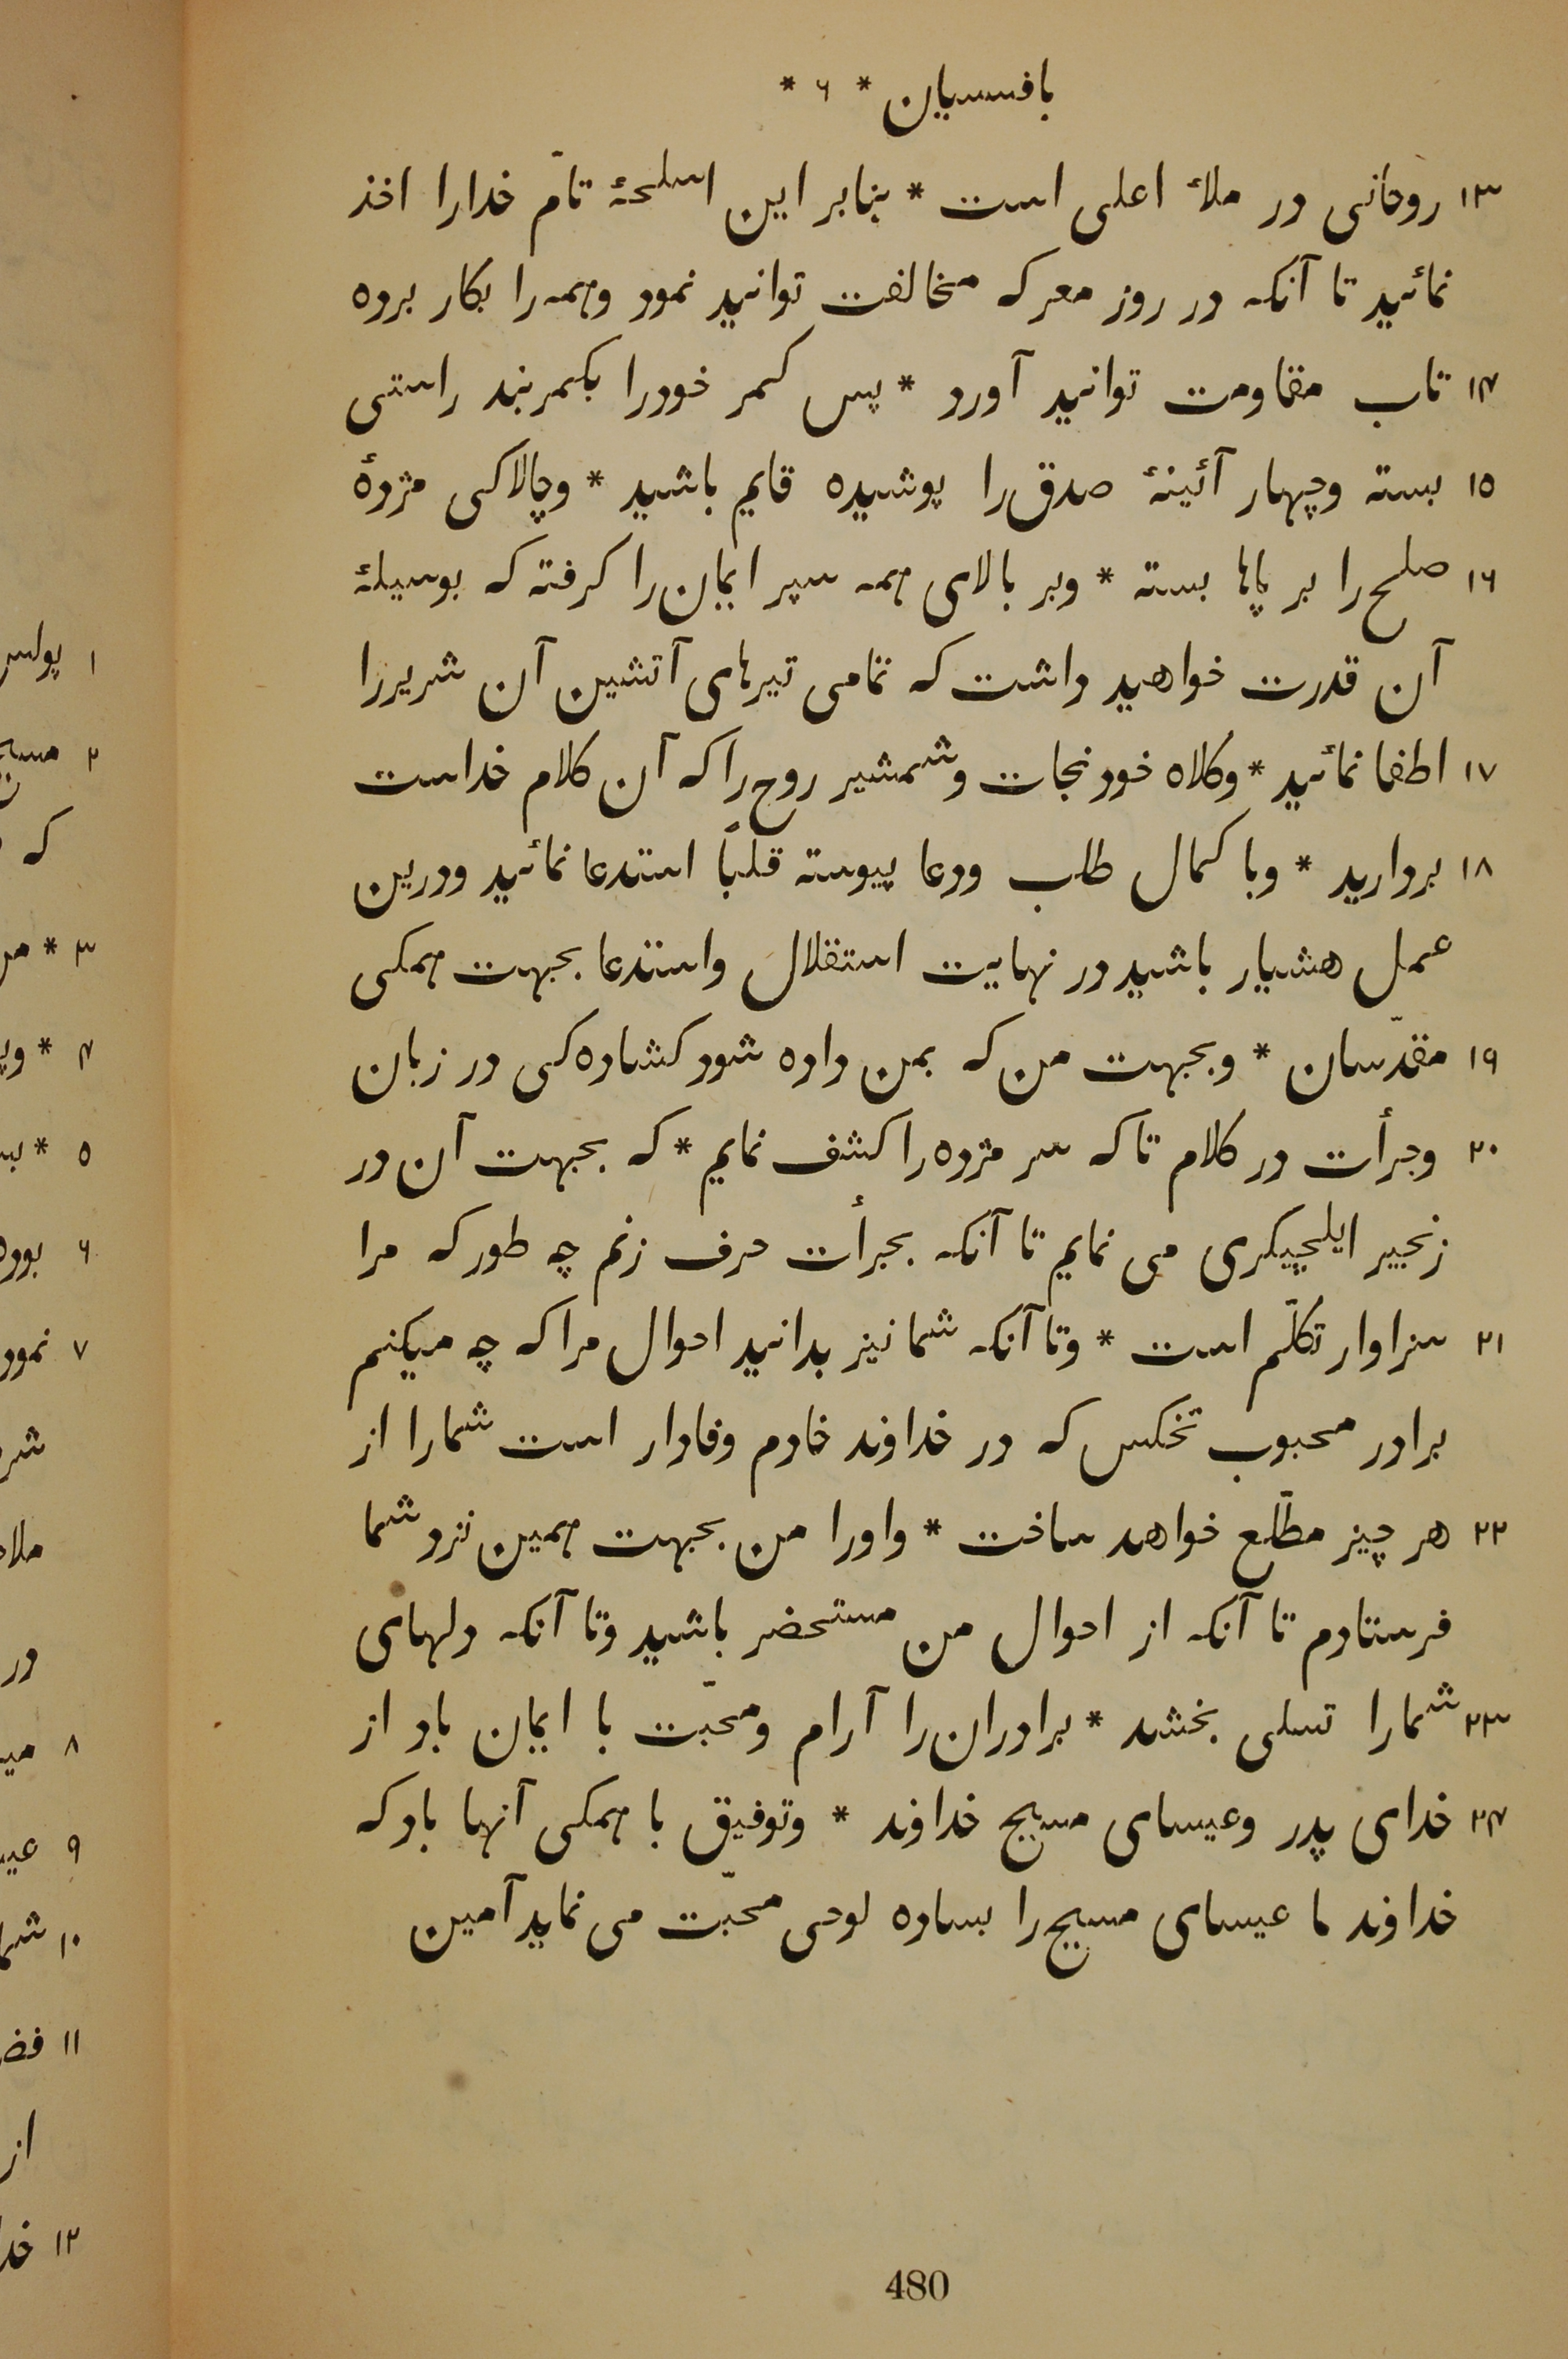 بافسسیان * ٦ *
١٣ روحانی در ملأ اعلی است * بنابر این اسلحۀ تامّ خدارا اخذ
نمائید تا آنکه در روز معرکه مخالفت توانید نمود وهمه را بکار برده
١٤ تاب مقاومت توانید آورد * پس کمر خودرا بکمربند راستی
١٥ بسته وچهار آئینۀ صدق را پوشیده قایم باشید * وچالاکی مژدۀ
١٦ صلح را بر پاها بسته * وبر بالای همه سپر ایمان را کرفته که بوسیلۀ
آن قدرت خواهید داشت که تمامی تیرهای آتشین آن شریررا
١٧ اطفا نمائید * وکلاه خود نجات وشمشیر روح را که آن کلام خداست
١٨ بردارید * وبا کمال طلب ودعا پیوسته قلباً استدعا نمائید ودرین
عمل هشیار باشید در نهایت استقلال واستدعا بجهت همکی
١٩ مقدّسان * وبجهت من که بمن داده شود کشاده کی در زبان
٢٠ وجرأت در کلام تا که سر مژده را کشف نمایم * که بجهت آن در
زنجیر ایلچیکری می نمایم تا آنکه بجرأت حرف زنم چه طور که مرا
٢١ سزاوار تکلّم است * وتا آنکه شما نیز بدانید احوال مرا که چه میکنم
برادر محبوب تخکس که در خداوند خادم وفادار است شمارا از
٢٢ هر چیز مطّلع خواهد ساخت * واورا من بجهت همین نزد شما
فرستادم تا آنکه از احوال من مستحضر باشید وتا آنکه دلهای
٢٣ شمارا تسلی بخشد * برادران را آرام ومحبّت با ایمان باد از
٢٤ خدای پدر وعیسای مسیح خداوند * وتوفیق با همکی آنها باد که
خداوند ما عیسای مسیح را بساده لوحی محبّت می نماید آمین
480
١ پولس
٢ مسیح
که
٣ *
٤ *
٥ *
٦
٧ نمود
در
٨
٩
١٠
١١
از
١٢